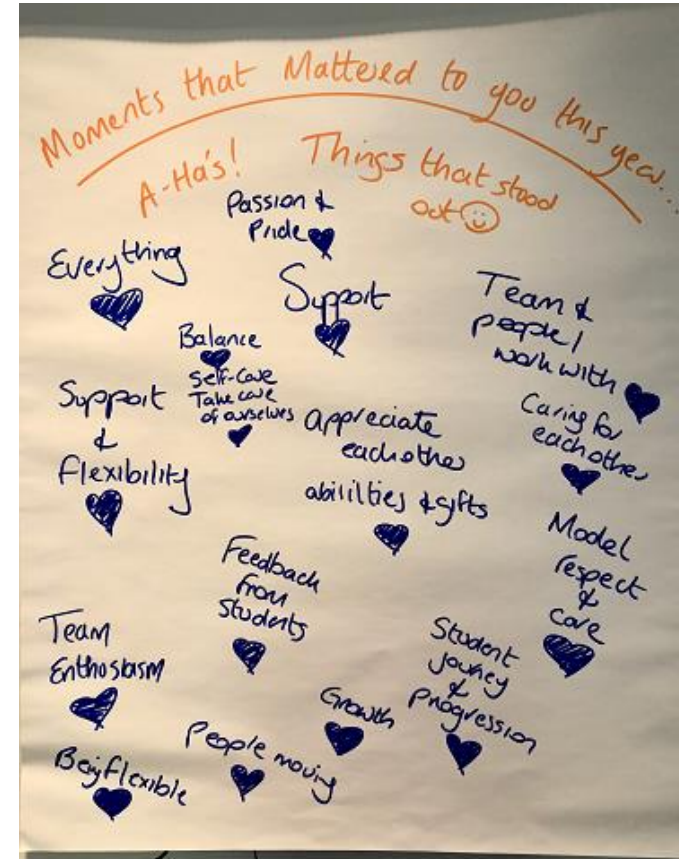 Moments that Mattered to you this year...
A-Ha's!
Things that stood
out
Passion &
Pride
Everything
Support
Team &
people I
work with
Balance
Self-Care
Take care
of ourselves
Support
&
flexibility
Appreciate
each other
abililties & gifts
Caring for
each other
Model
respect
&
care
Feedback
from
students
Team
Enthosiasm
Student
journey
&
progression
Growth
People moving
Being flexible